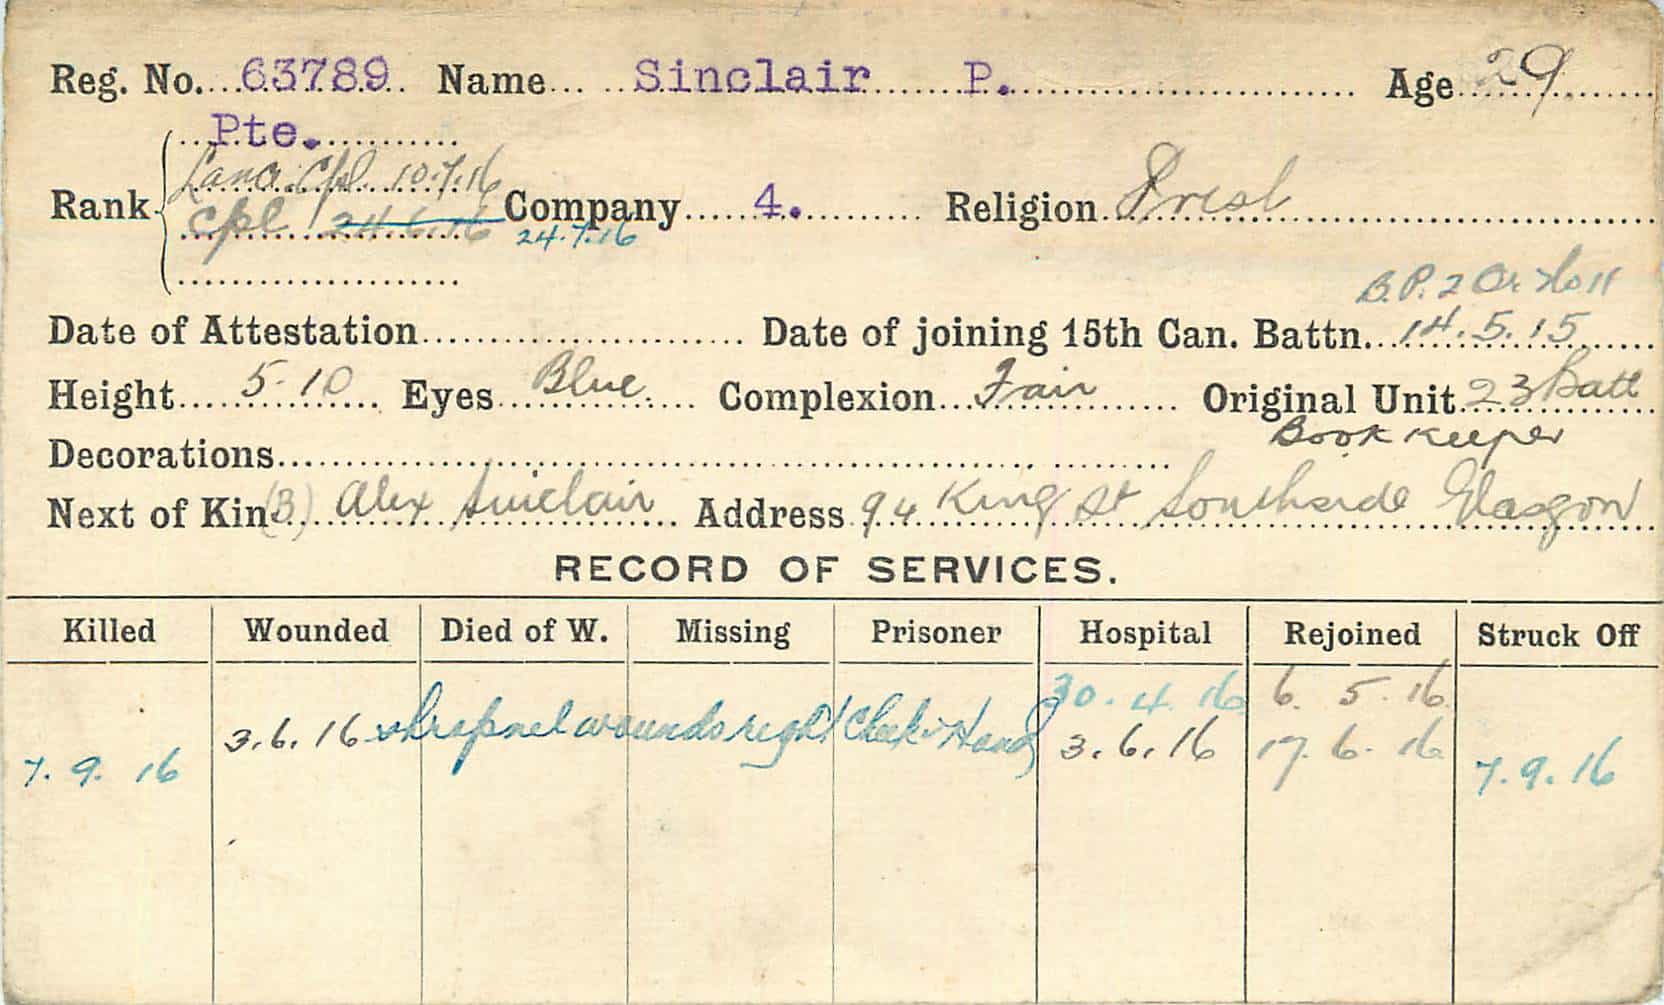 Reg. No. 63789 Name Sinclair P. Age 29
Pte.
Rank Lanc. Cpl 10.7.16 Company 4. Religion Presb
Cpl 24.6.16 24.7.16
B.P. 2 Or
Date of Attestation Date of joining 15th Can. Battn. 14.5.15
Height 5-10 Eyes Blue. Complexion Fair Original Unit 23 Batt
Book Keeper
Decorations
Next of Kin (B) Alex Sinclair Address 94 King St Southside Glasgow
RECORD OF SERVICES.
Killed Wounded Died of W. Missing Prisoner Hospital Rejoined Struck Off
30.4.16 6.5.16
3.6.16 shrapnel wounds right Cheek & Hand 3.6.16 17.6.16
7.9.16 7.9.16